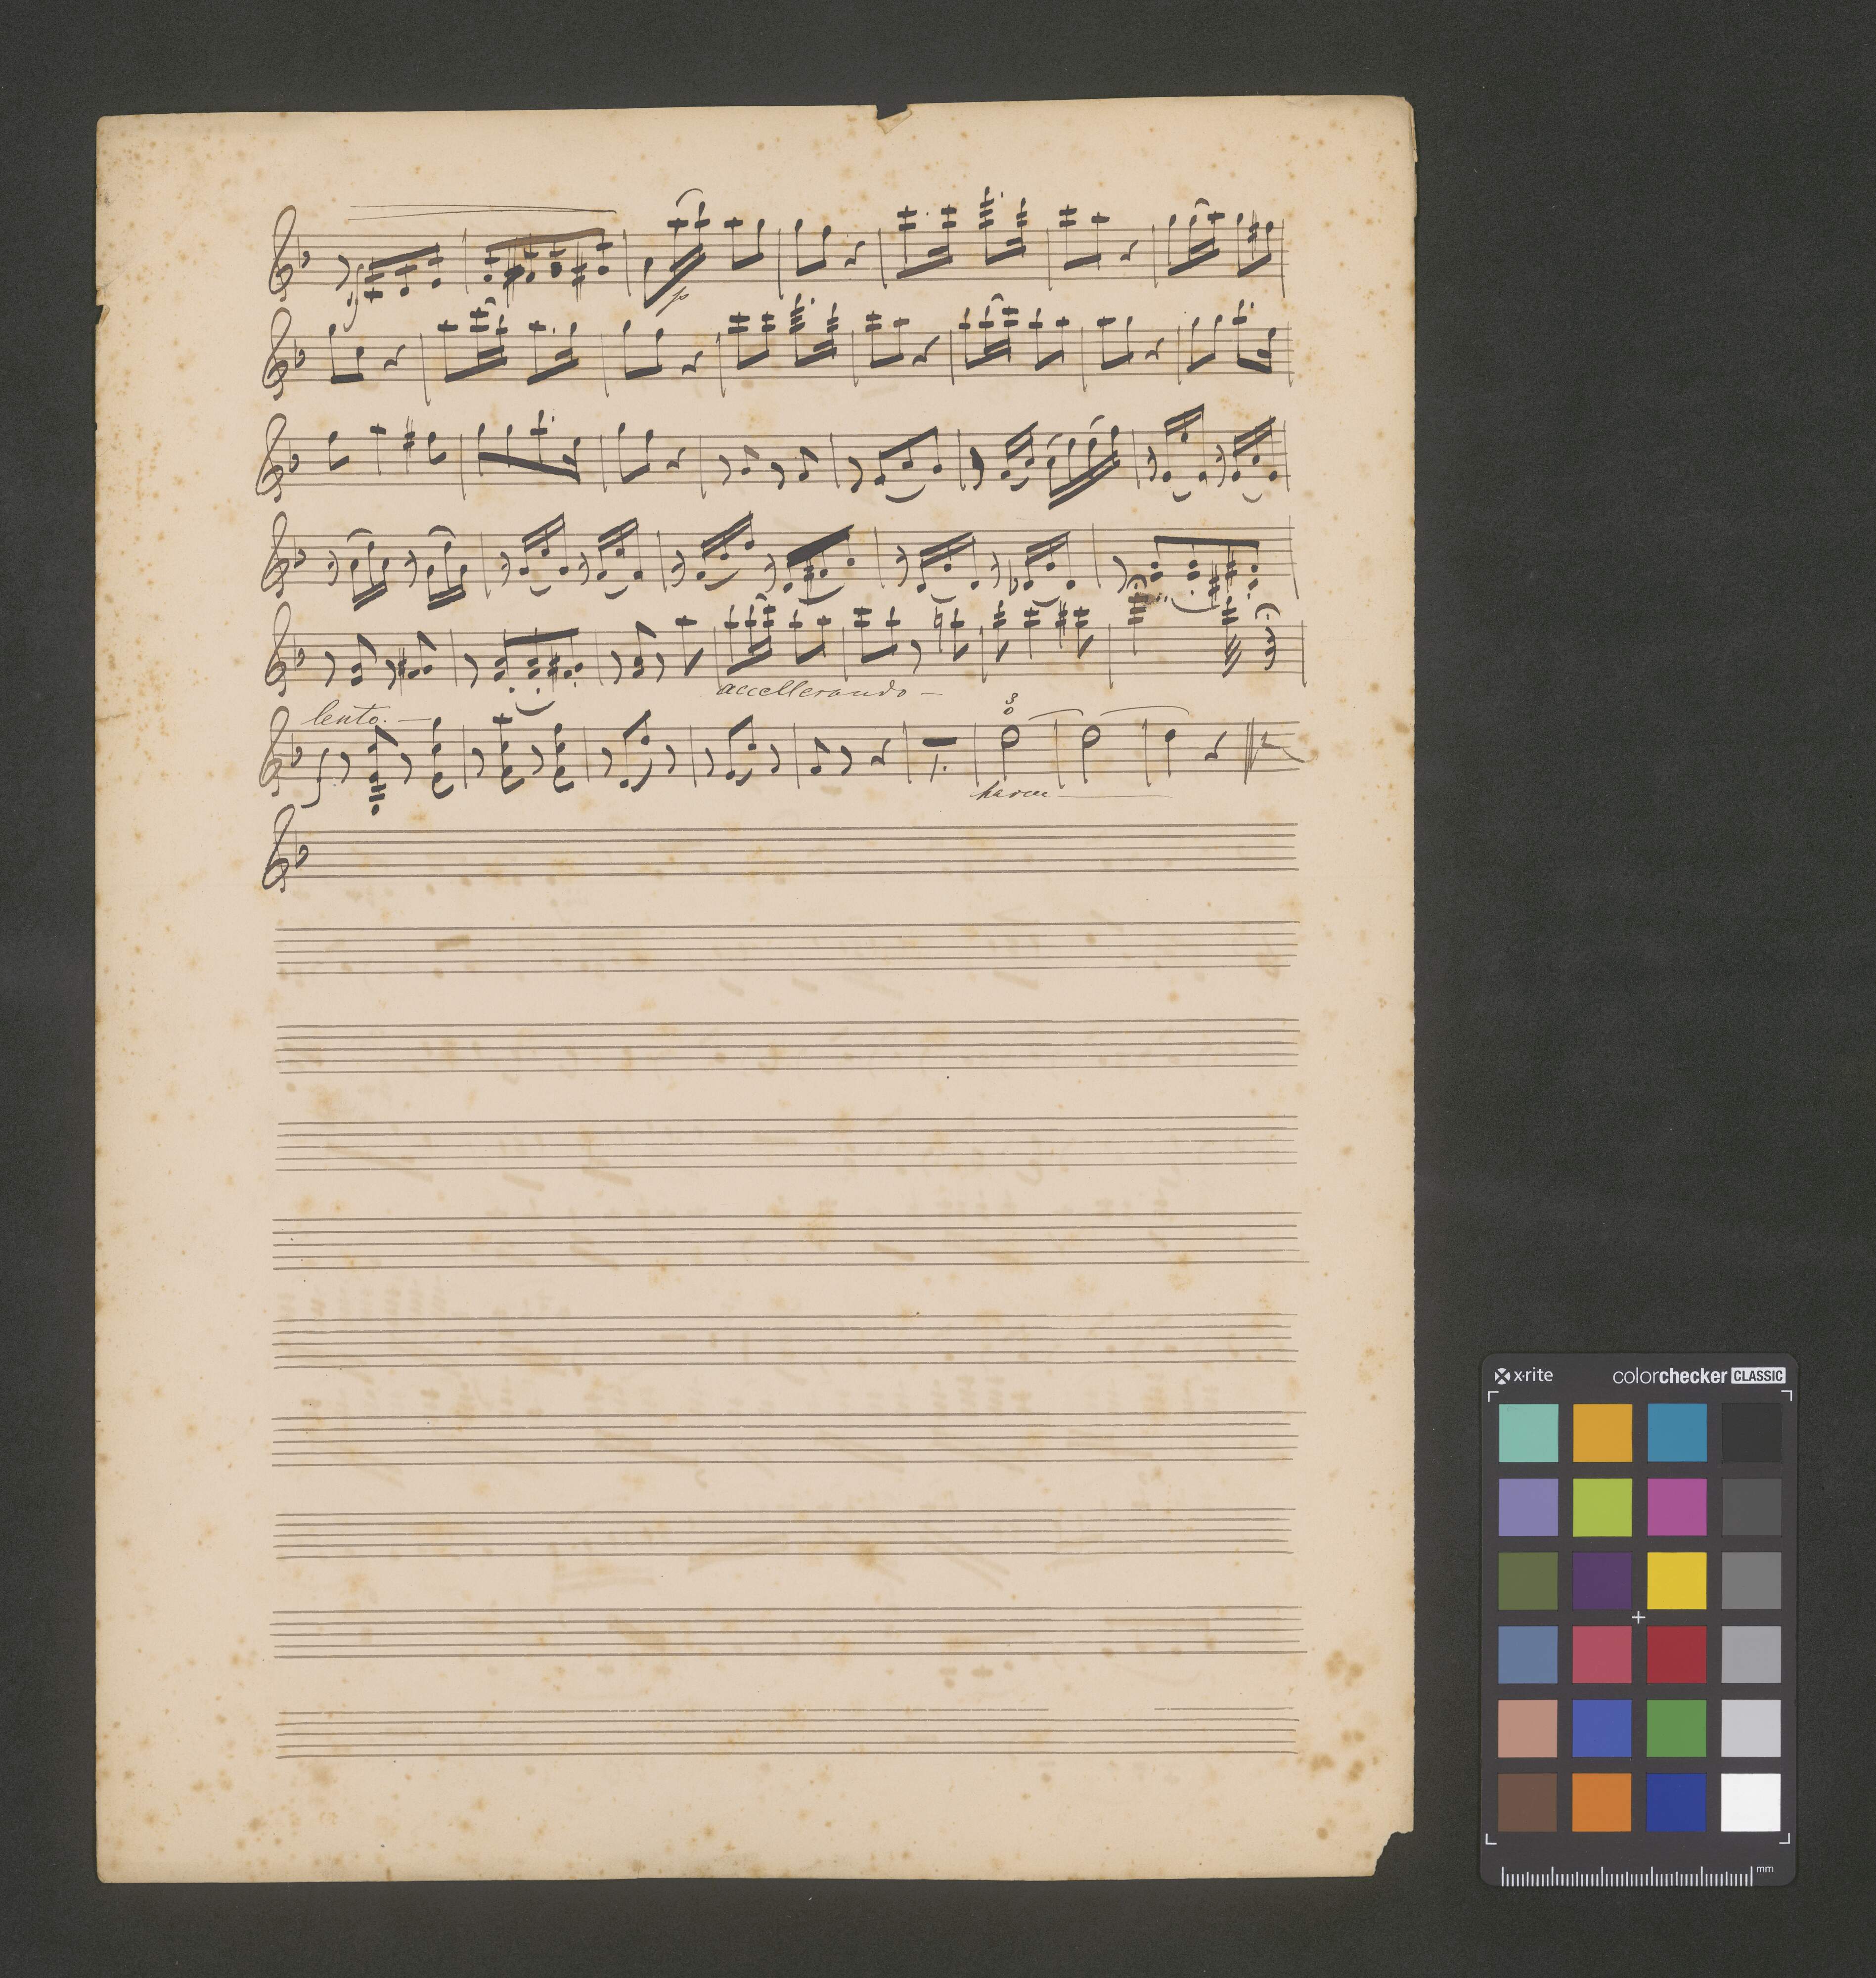 p
accellerando
lento.
f.
3
0
harm
x-rite colorchecker CLASSIC
mm